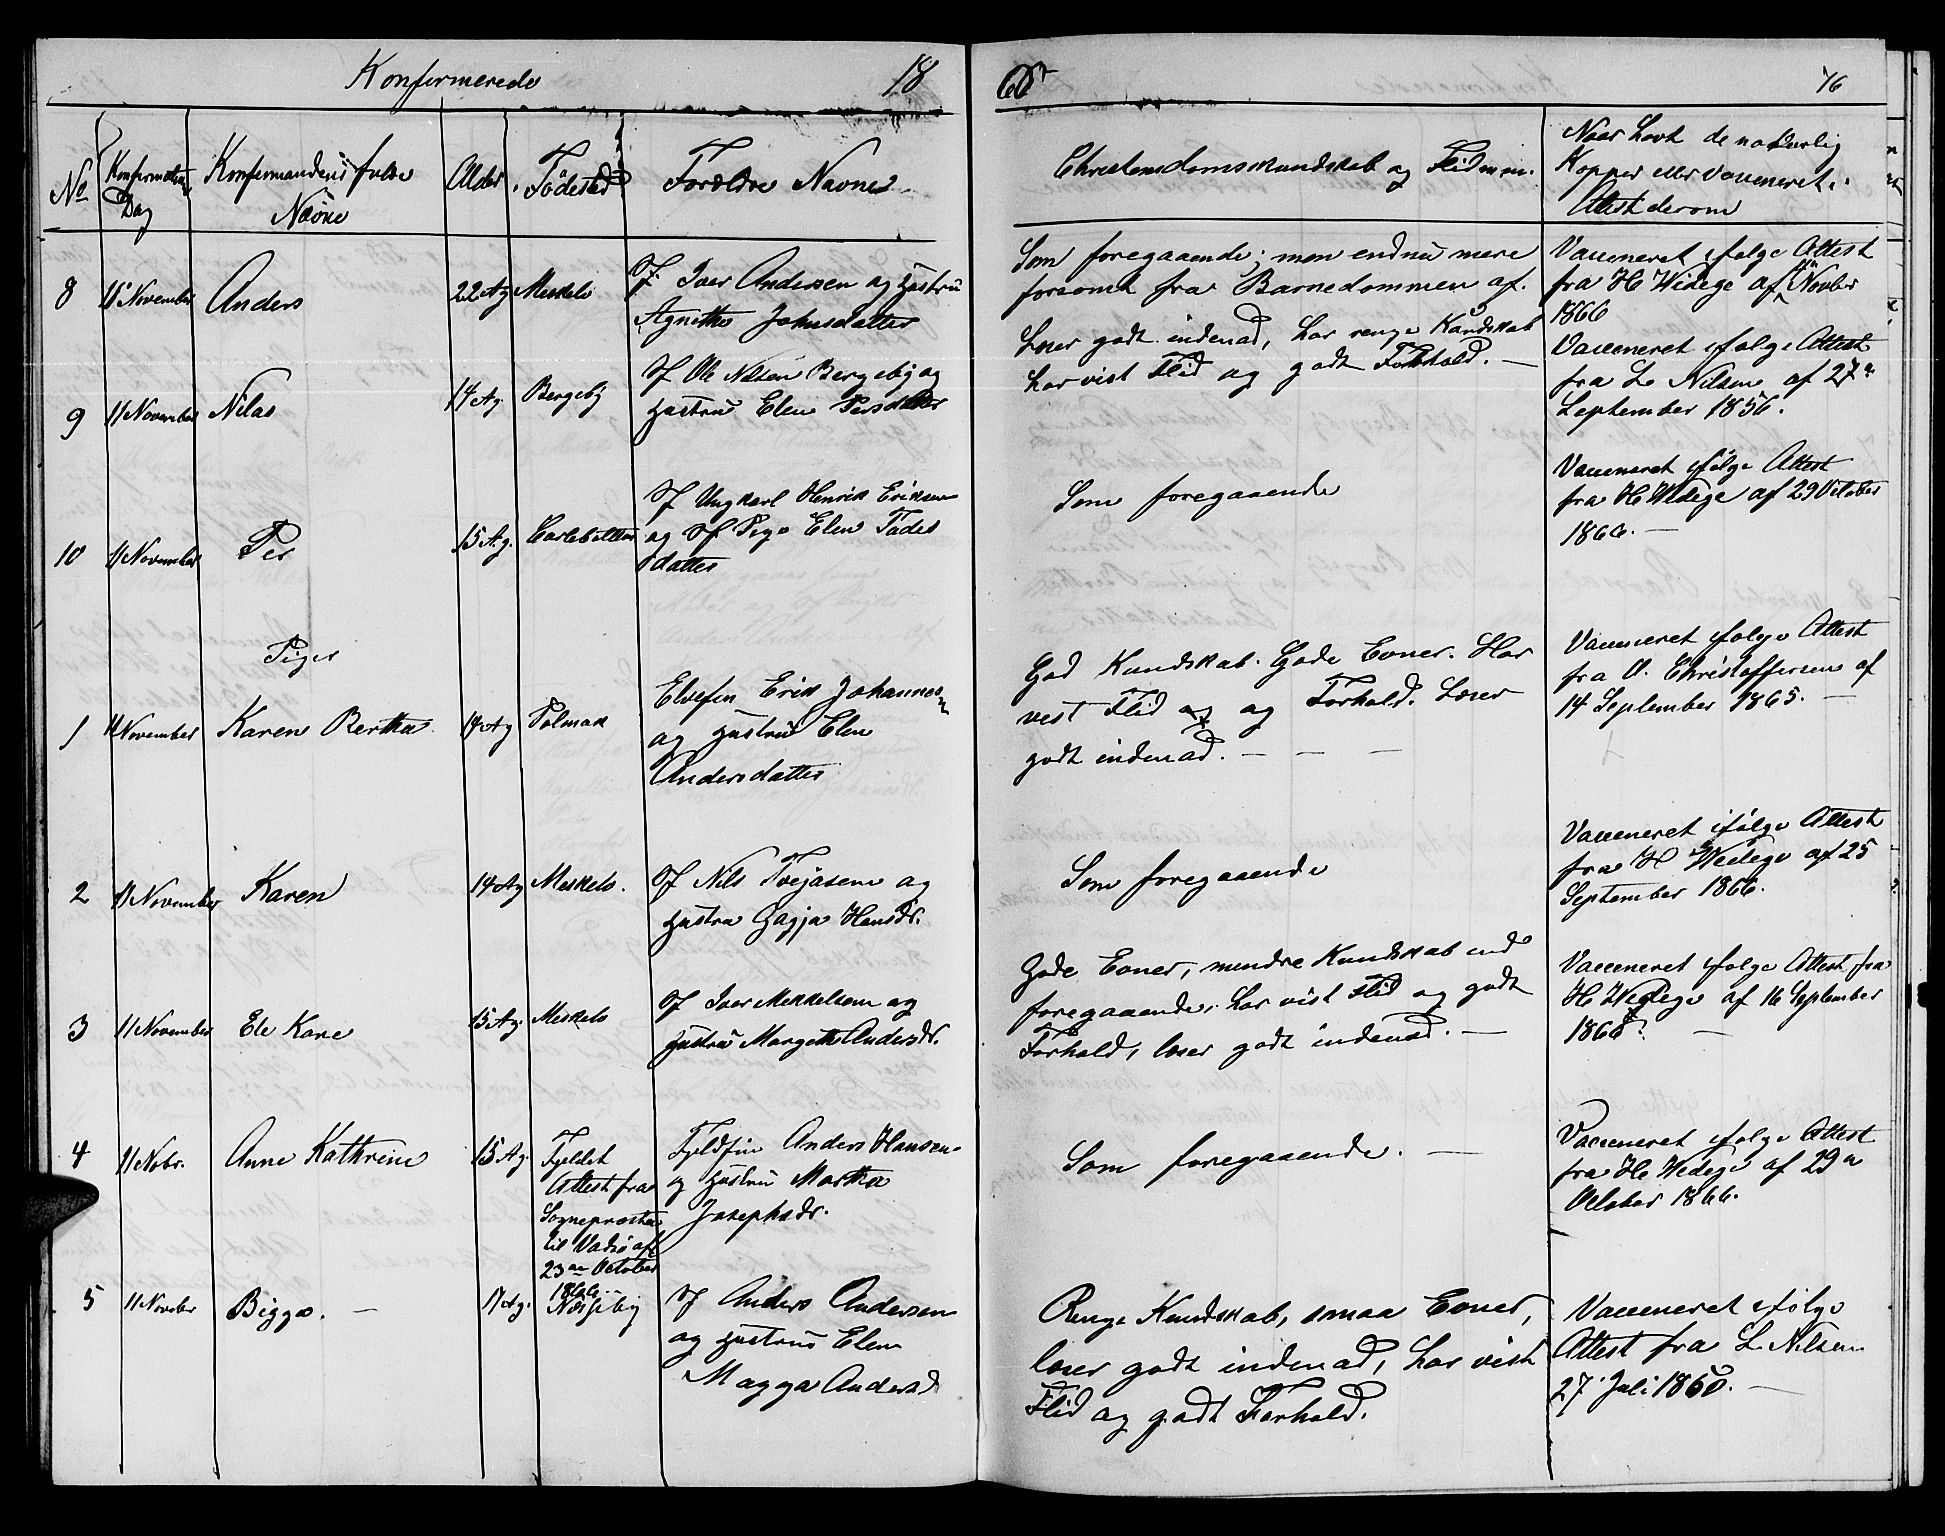 Konfirmerede 18
66 76
No Konfirmations Dag Konfirmandens fulde Navne Alder Födested Forældre Navne
Christendomskundskab og Flid m.m. Naar havt de naturlig
Kopper eller Vaccineret.
Attest derom
8 11 November Anders 22 Ag Meskelv
Sf. Iver Andersen og Hustru
Agnethe Johnsdatter
Som foregaaende, men endnu mere
forsømt fra Barnedommen af.
Vaccineret ifølge Attest
fra H. Wedege af Novbr
1866
9 11 November Nilas 14 Ag. Bergeby
Sf Ole Nilsen Bergeby og
Hustru Elen Persdatter
Læser godt indenad, har ringe Kundskab
har vist Flid og godt Forhold. —
Vaccineret ifølge Attest
fra L. Nilsen af 27n
September 1856.
10 11 November Per 15 Ag.
Sf Ungkarl Henrik Eriksen
og Sf Pige Elen Fades
datter
Som foregaaende
Vaccineret ifølge Attest
fra H. Wedege af 29 October
1866. —
Piger
1 11 November Karen Bertha 14 Ag Polmak
Elvefin Erik Johannes
n
og Hustru Elen
Andersdatter
God Kundskab. Gode Evner. Har
vist Flid og og Forhold. Læser
godt indenad. — — —
Vaccineret ifølge Attest
fra O. Christoffersen af
14 September 1865. —
2 11 November Karen 14 Ag Meskelv.
Sf Nils Hansen og
Hustru Gagja Hansdr.
Som foregaaende
Vaccineret ifølge Attest
fra H Wedege af 25
September 1866.
3 11 November Ele Kare 15 Ag. Meskelv
Sf Iver Mikkelsen og
Hustru Margethe Andersdr.
Gode Evner, mindre Kundskab end
foregaaende, har vist Flid og godt
Forhold, læser godt indenad. —
Vaccineret ifølge Attest fra
H. Wedege af 16 September
1866. —
4 11 Nobr. Anne Kathrine 15 Ag.
Fjeldet
Attest fra
Sognepræsten
til Vadsö af
23n October
1866.
Fjeldfin Anders Hansen
og Hustru Martha
Josephsdr.
Som foregaaende. —
Vaccineret ifølge Attest
fra H. Wedege af 29n
October 1866.
5 11 Novbr Bigga. — 17 Ag. Næsseby
Sf Anders Andersen
og Hustru Elen
Magga Andersd
Ringe Kundskab, smaa Evner,
læser godt indenad, har vist
Flid og godt Forhold.
Vaccineret ifølge
Attest fra L. Nilsen
27 Juli 1850. —